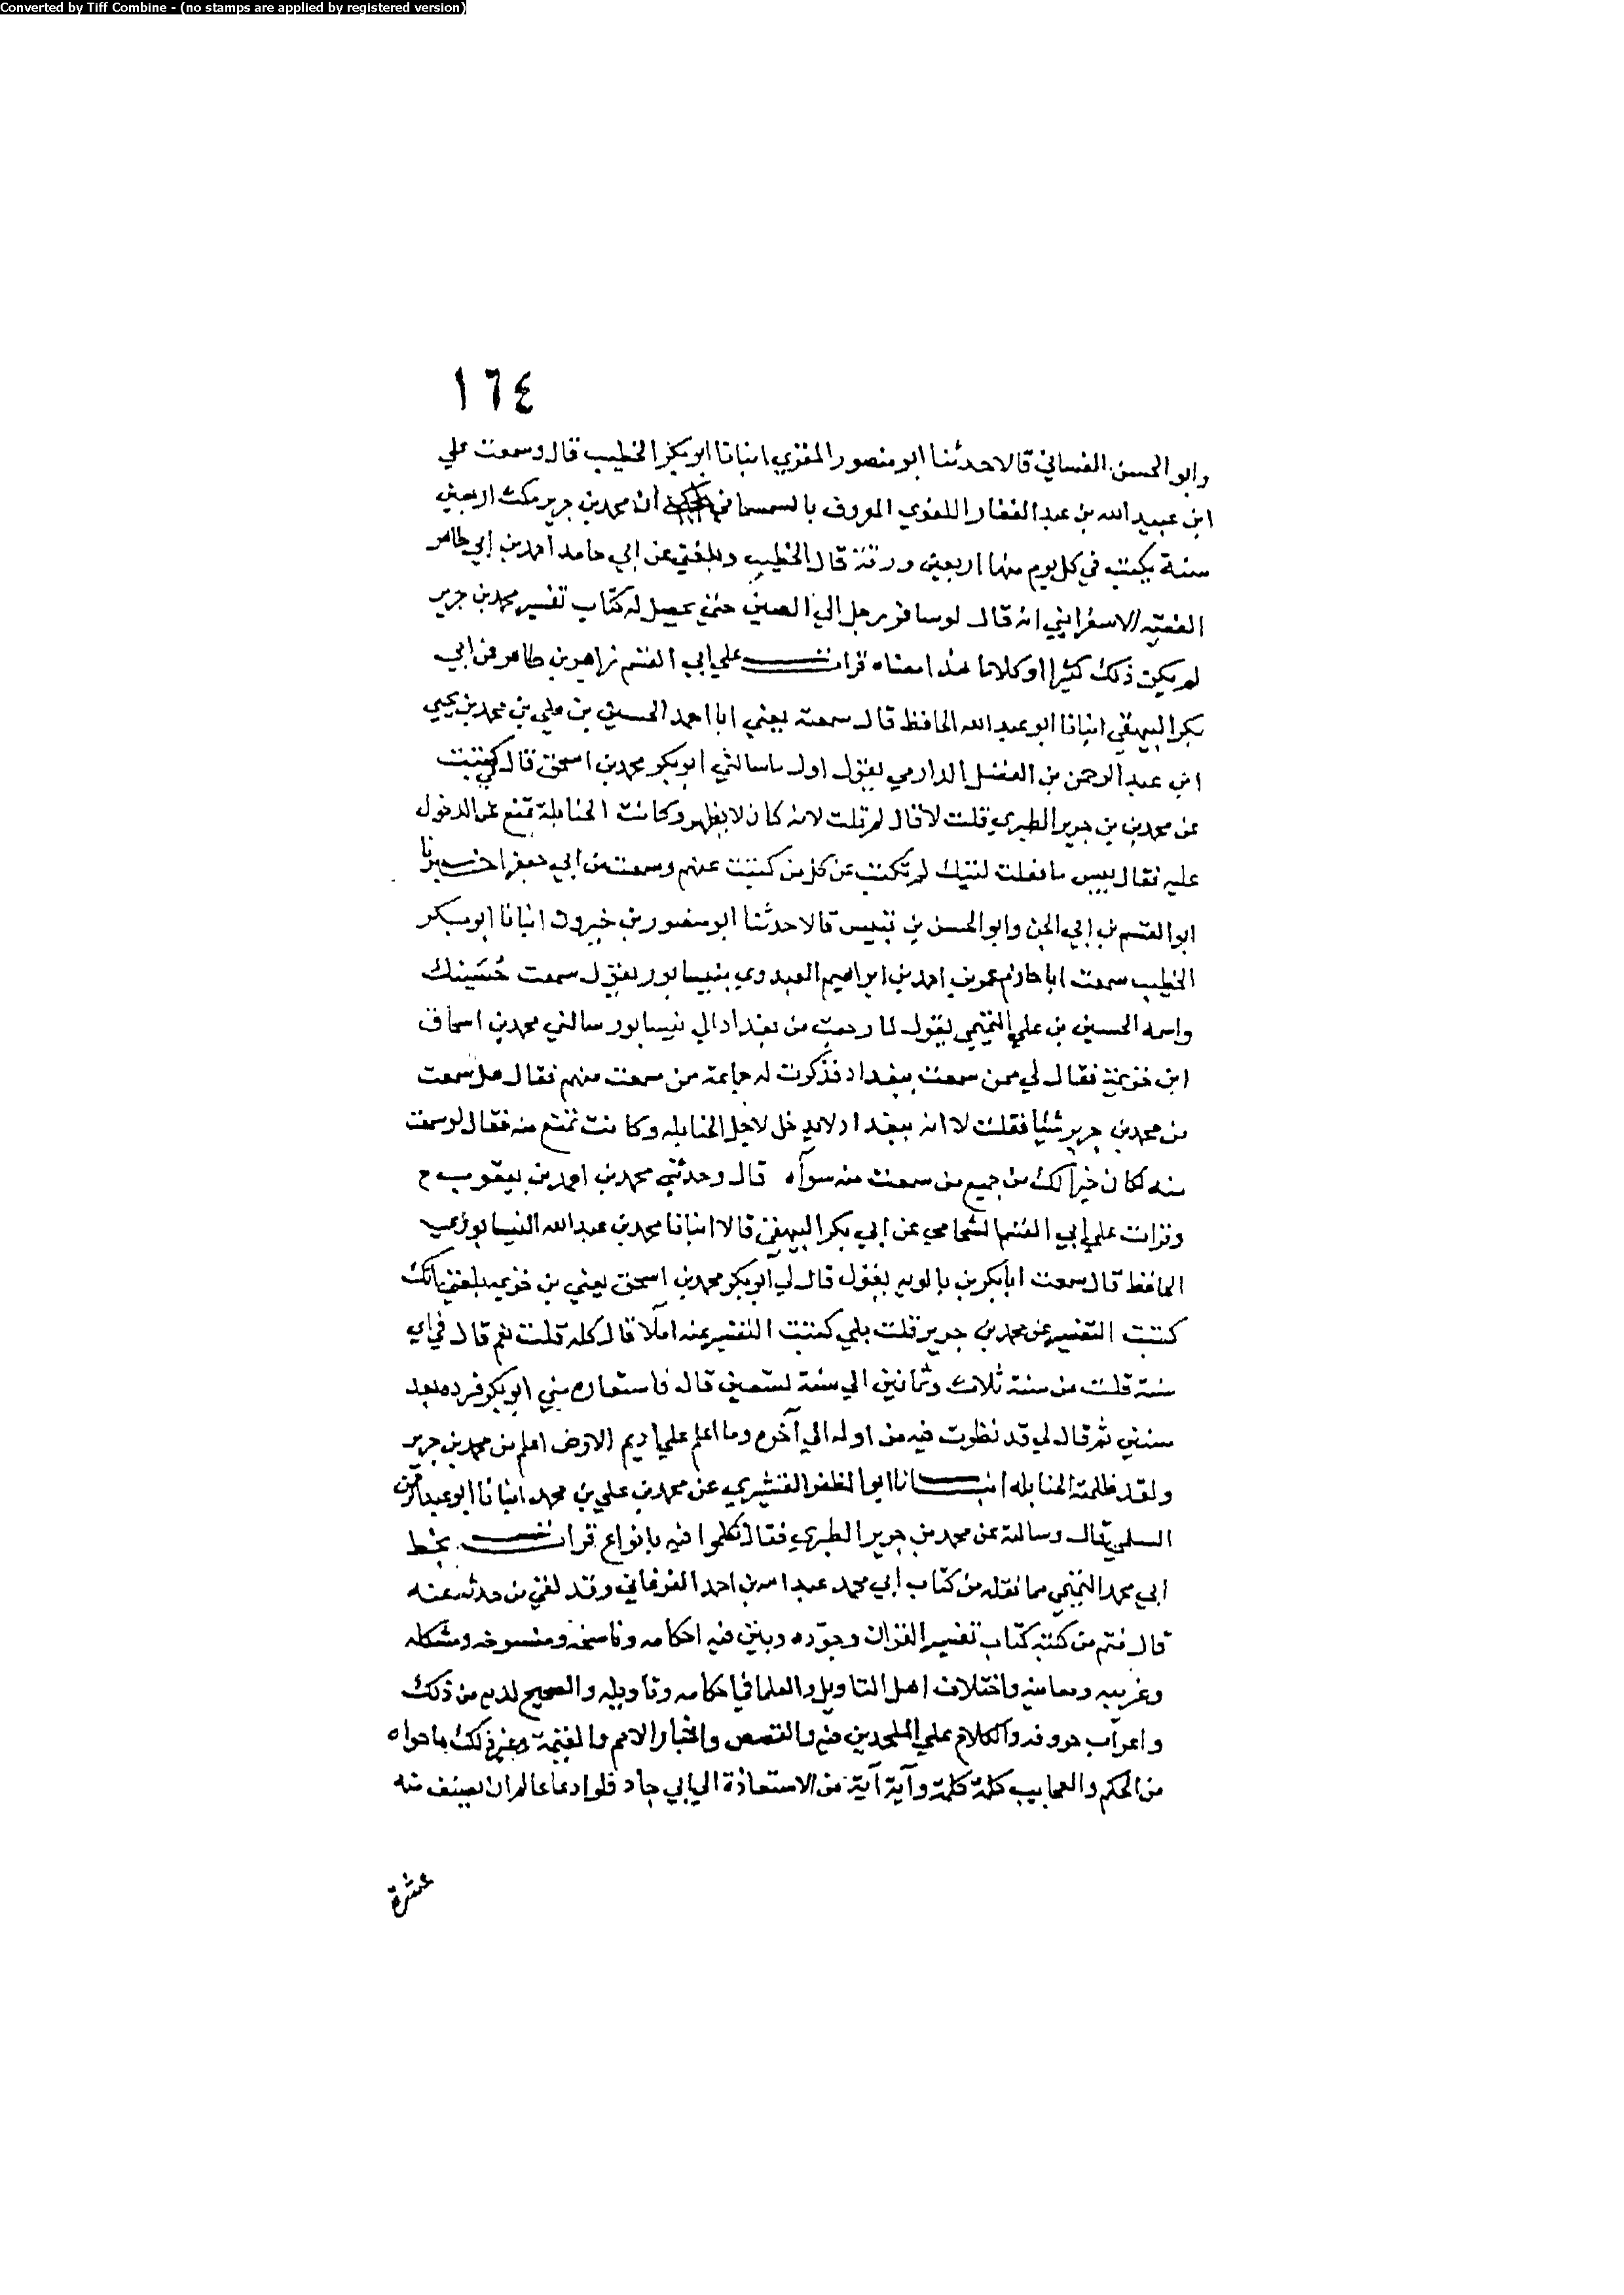 Converted by Tiff Combine - (no stamps are applied by registered version)
١٦٤
وابو الحسن الغساني قالا حدثنا ابو منصور المقري انبانا ابو بكر الخطيب قال وسمعت علي
ابن عبيد الله بن عبد الغفار اللغوي المعروف بالسمسماني أن محمد بن جرير مكث اربعين
سنة يكتب في كل يوم منها اربعين ورقة قال الخطيب وبلغني عن ابي حامد احمد بن ابي طاهر
الفقيه الاسفرايني انه قال لو سافر رجل الي الصين حتي يحصل له كتاب تفسير محمد بن جرير
لم يكن ذلك كثيرا او كلاما هذا معناه قرات علي ابي القسم زاهر بن طاهر عن ابي
بكر البيهقي انبانا ابو عبد الله الحافظ قال سمعته يعني ابا احمد الحسين بن علي بن محمد بن يحيي
ابن عبد الرحمن بن الفضل الدارمي يقول اول ما سالني ابو بكر محمد بن اسحق قال كتبت
عن محمد بن جرير الطبري قلت لا قال لم قلت لانه كان لا يظهر وكانت الحنابلة تمنع عن الدخول
عليه فقال بيس ما فعلت لتيك لم تكتب عن كل من كتبت عنهم وسمعت من ابي جعفر اخبرنا
ابو القسم بن ابي الجن وابو الحسن بن قبيس قالا حدثنا ابو منصور بن خيرون انبانا ابو بكر
الخطيب سمعت ابا حازم عمر بن احمد بن ابراهيم العبدوي بنيسابور يقول سمعت حُسَينك
واسمه الحسين بن علي التميمي يقول لما رجعت من بغداد الي نيسابور سالني محمد بن اسحاق
ابن خزيمة فقال لي ممن سمعت ببغداد فذكرت له جماعة من سمعت منهم فقال هل سمعت
من محمد بن جرير شيا فقلت لا انه ببغداد لا يدخل لاجل الحنابله وكانت تمنع منه فقال لو سمعت
منه لكان خيرا لك من جميع من سمعت منه سواه قال وحدثني محمد بن احمد بن يعقوب ح
وقرات علي ابي القسم الشحامي عن ابي بكر البيهقي قالا انبانا محمد بن عبد الله النيسابوري
الحافظ قال سمعت ابا بكر بن بالويه يقول قال لي ابو بكر محمد بن اسحق يعني بن خزيمه بلغني انك
كتبت التفسير عن محمد بن جرير قلت بلي كتبت التفسير عنه املآ قال كله قلت نعم قال في اي
سنة قلت من سنة ثلاث وثمانين الي سنة تسعين قال فاستعاره مني ابو بكر فرده بعد
سنتين ثم قال لي قد نظرت فيه من اوله الي آخره وما اعلم علي اديم الارض اعلم من محمد بن جرير
ولقد ظلمته الحنابله انبانا ابو المظفر القشيري عن محمد بن علي بن محمد انبانا ابو عبد الرحمن
السلمي قال وسالته عن محمد بن جرير الطبري فقال تكلموا فيه بانواع قرات بخط
ابي محمد التميمي مما نقله من كتاب ابي محمد عبد الله بن احمد الفرغاني وقد لقي من حدثه عنه
قال فتم من كتبه كتاب تفسير القران وجوّده وبين فيه احكامه وناسخه ومنسوخه ومشكله
وغريبه ومعانيه واختلاف اهل التاويل والعلما في احكامه وتاويله والصحيح لديه من ذلك
واعرآب حروفه والكلام علي الملحدين فيه والقصص واخبار الامم والقيمة وغير ذلك مما حواه
من الحكم والعجايب كلمة كلمة وآية آية من الاستعاذة الي ابي جاد فلو ادعا عالم ان يصنف منه
عشرة